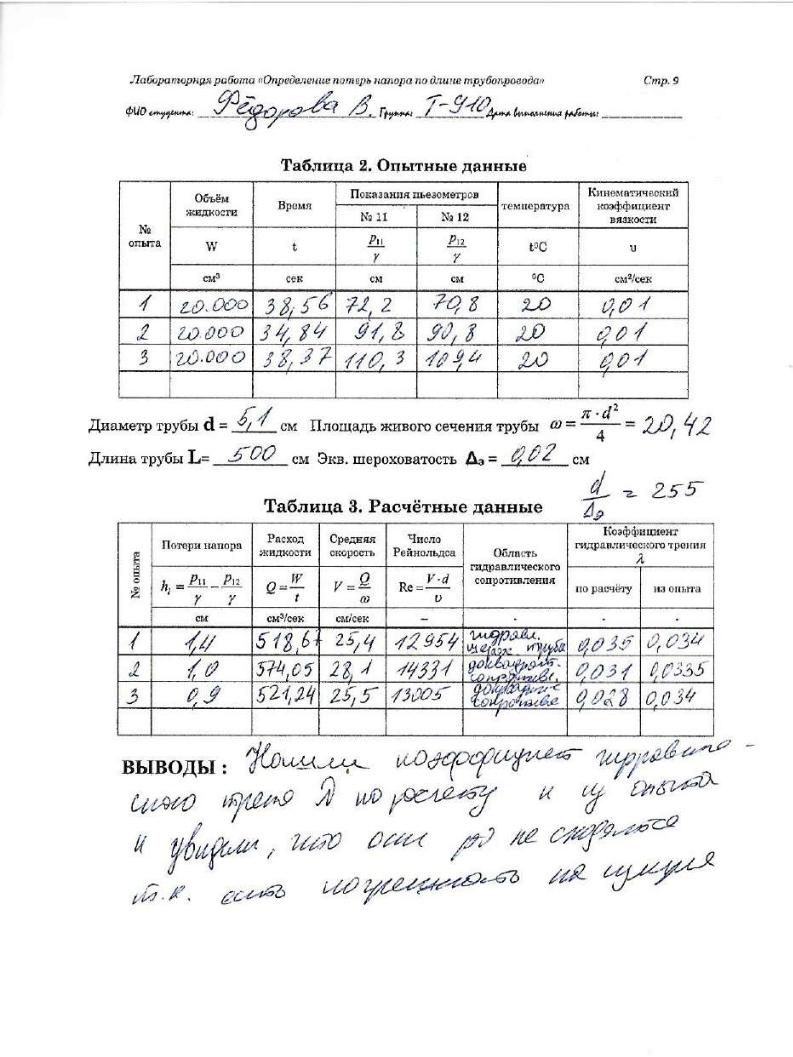 Лабораторная работа «Определение потерь напора по длине трубопровода» Стр. 9
ФИО студента: Фёдорова В. Группа: Т-910 Дата выполнения работы:
Таблица 2. Опытные данные
№ опыта Объём жидкости Время Показания пьезометров температура Кинематический коэффициент вязкости
№ 11 № 12
W t P11/γ P12/γ t⁰C υ
см³ сек см см ⁰C см²/сек
1 20.000 38,56 72,2 70,8 20 0,01
2 20.000 34,84 91,8 90,8 20 0,01
3 20.000 38,37 110,3 109,4 20 0,01
Диаметр трубы d = 5,1 см Площадь живого сечения трубы ω = π·d²/4 = 20,42
Длина трубы L= 500 см Экв. шероховатость Δэ = 0,02 см
d/Δэ = 255
Таблица 3. Расчётные данные
№ опыта Потери напора Расход жидкости Средняя скорость Число Рейнольдса Область гидравлического сопротивления Коэффициент гидравлического трения λ
hₗ = P11/γ - P12/γ Q = W/t V = Q/ω Re = V·d/υ по расчёту из опыта
см см³/сек см/сек – - - -
1 1,4 518,67 25,4 12954 гидравл. шерох. труба 0,035 0,034
2 1,0 574,05 28,1 14331 доквадрат. сопротивл. 0,031 0,0335
3 0,9 521,24 25,5 13005 0,028 0,034
ВЫВОДЫ : Нашли коэффициент гидравличе-
ского λ по расчету и из опыта
и увидели, что они не сходятся
т.к. есть погрешность на